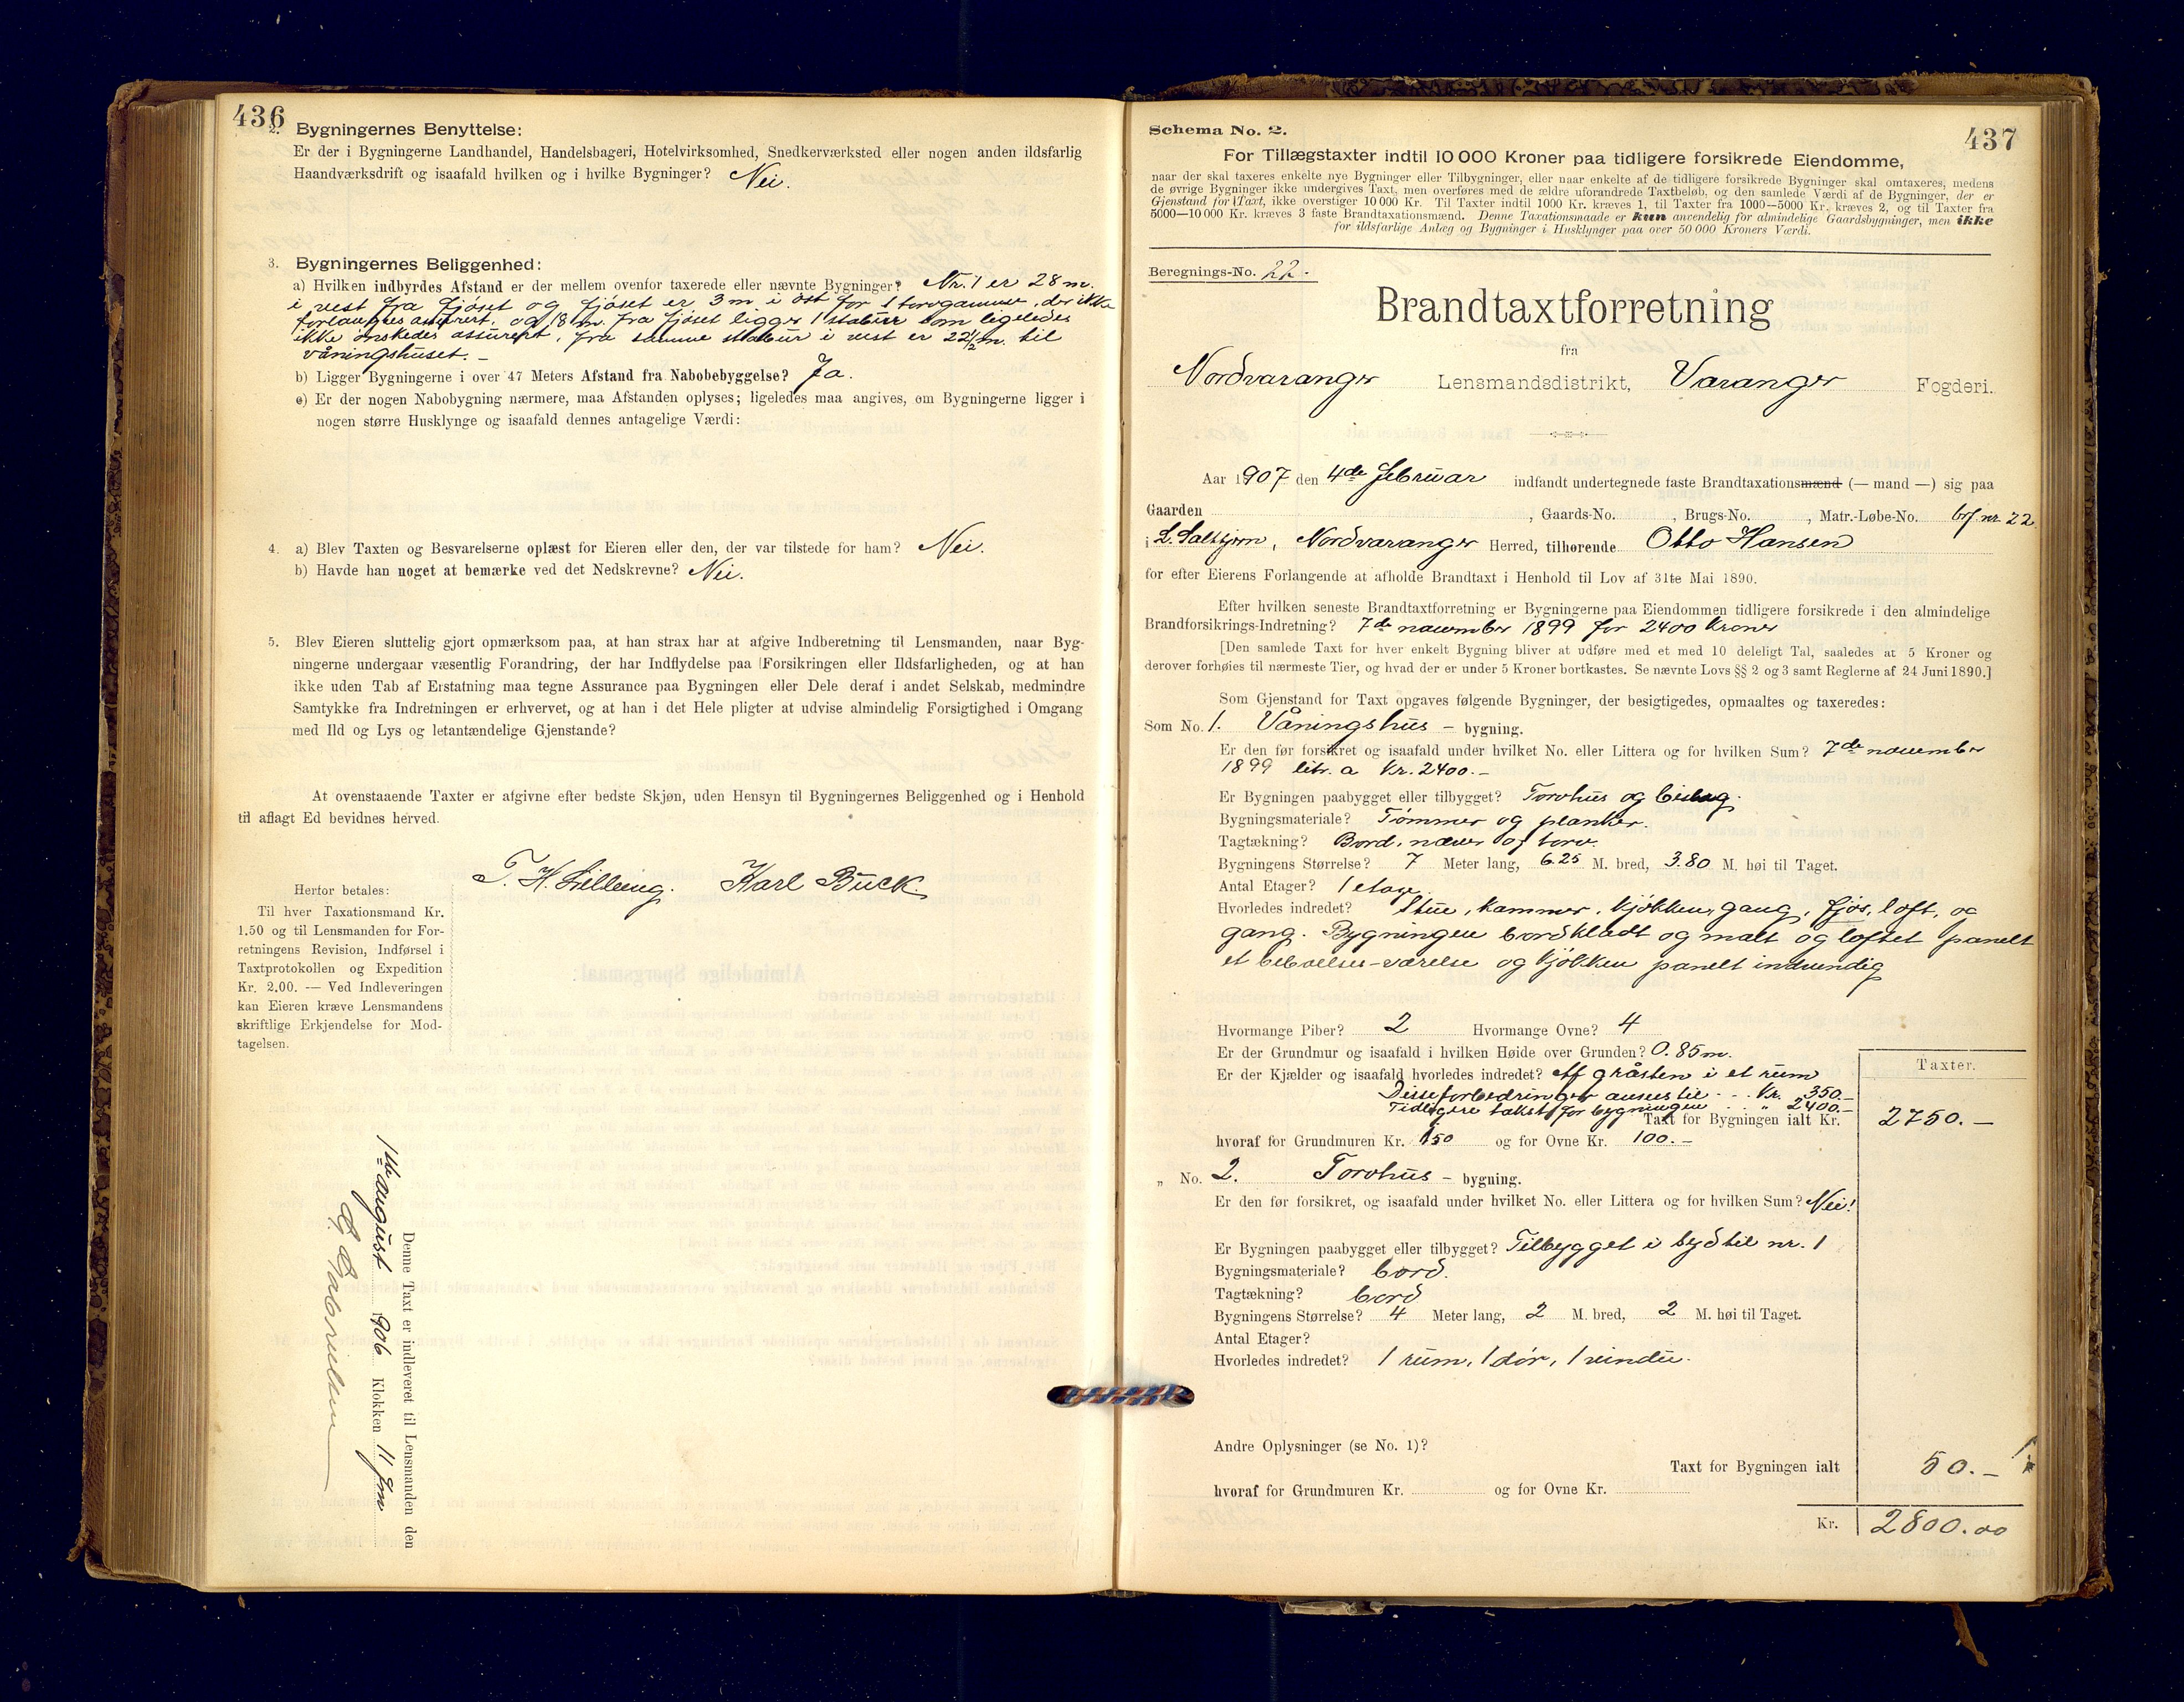 436
2. Bygningernes Benyttelse:
Er der i Bygningerne Landhandel, Handelsbageri, Hotelvirksomhed, Snedkerværksted eller nogen anden ildsfarlig
Haandværksdrift og isaafald hvilken og i hvilke Bygninger? Nei.
3. Bygningernes Beliggenhed:
a) Hvilken indbyrdes Afstand er der mellem ovenfor taxerede eller nævnte Bygninger? Nr. 1 er 28 m.
i vest fra fjöset og fjöset er 3 m i öst for 1 torvgamme, der ikke
forlanges assurert, og 18 m. fra fjöset ligger 1 stabur som ligeledes
ikke önskedes assurert, fra samme stabur i vest er 22 1/2 m. til
våningshuset. –
b) Ligger Bygningerne i over 47 Meters Afstand fra Nabobebyggelse? Ja.
c) Er der nogen Nabobygning nærmere, maa Afstanden oplyses; ligeledes maa angives, om Bygningerne ligger i
nogen større Husklynge og isaafald dennes antagelige Værdi:
4. a) Blev Taxten og Besvarelserne oplæst for Eieren eller den, der var tilstede for ham? Nei.
b) Havde han noget at bemærke ved det Nedskrevne? Nei.
5. Blev Eieren sluttelig gjort opmærksom paa, at han strax har at afgive Indberetning til Lensmanden, naar Byg-
ningerne undergaar væsentlig Forandring, der har Indflydelse paa Forsikringen eller Ildsfarligheden, og at han
ikke uden Tab af Erstatning maa tegne Assurance paa Bygningen eller Dele deraf i andet Selskab, medmindre
Samtykke fra Indretningen er erhvervet, og at han i det Hele pligter at udvise almindelig Forsigtighed i Omgang
med Ild og Lys og letantændelige Gjenstande?
At ovenstaaende Taxter er afgivne efter bedste Skjøn, uden Hensyn til Bygningernes Beliggenhed og i Henhold
til aflagt Ed bevidnes herved.
Karl Buck.
Herfor betales:
Til hver Taxationsmand Kr.
1.50 og til Lensmanden for For-
retningens Revision, Indførsel i
Taxtprotokollen og Expedition
Kr. 2,00. — Ved Indleveringen
kan Eieren kræve Lensmandens
skriftlige Erkjendelse for Mod-
tagelsen.
Denne Taxt er indleveret til Lensmanden den
1ste august 1906 Klokken 11 fm
Gabrielsen
437
Schema No. 2.
For Tillægstaxter indtil 10 000 Kroner paa tidligere forsikrede Eiendomme,
naar der skal taxeres enkelte nye Bygninger eller Tilbygninger, eller naar enkelte af de tidligere forsikrede Bygninger skal omtaxeres, medens
de øvrige Bygninger ikke undergives Taxt, men overføres med de ældre uforandrede Taxtbeløb, og den samlede Værdi af de Bygninger, der er
Gjenstand for Taxt, ikke overstiger 10 000 Kr. Til Taxter indtil 1000 Kr. kræves 1, til Taxter fra 1000—5000 Kr. kræves 2, og til Taxter fra
5000—10 000 Kr. kræves 3 faste Brandtaxationsmænd. Denne Taxationsmaade er kun anvendelig for almindelige Gaardsbygninger, men ikke
for ildsfarlige Anlæg og Bygninger i Husklynger paa over 50 000 Kroners Værdi.
Beregnings-No. 22.
Brandtaxtforretning
fra
Nordvaranger Lensmandsdistrikt, Varanger Fogderi.
Aar 1907 den 4de februar indfandt undertegnede faste Brandtaxationsmænd (— mand —) sig paa
Gaarden , Gaards-No. , Brugs-No. , Matr.-Løbe-No. bf. nr. 22
i L. Saltbjern, Nordvaranger Herred, tilhørende Otto Hansen
for efter Eierens Forlangende at afholde Brandtaxt i Henhold til Lov af 31te Mai 1890.
Efter hvilken seneste Brandtaxtforretning er Bygningerne paa Eiendommen tidligere forsikrede i den almindelige
Brandforsikrings-Indretning? 7de november 1899 for 2400 Kroner
[Den samlede Taxt for hver enkelt Bygning bliver at udføre med et med 10 deleligt Tal, saaledes at 5 Kroner og
derover forhøies til nærmeste Tier, og hvad der er under 5 Kroner bortkastes. Se nævnte Lovs §§ 2 og 3 samt Reglerne af 24 Juni 1890.]
Som Gjenstand for Taxt opgaves følgende Bygninger, der besigtigedes, opmaaltes og taxeredes:
Som No. 1. Våningshus – bygning.
Er den før forsikret og isaafald under hvilket No. eller Littera og for hvilken Sum? 7de november
1899 litr. a Kr. 2400.–
Er Bygningen paabygget eller tilbygget? Torvhus og bislag.
Bygningsmateriale? Tömmer og planker.
Tagtækning? Bord, næver og torv.
Bygningens Størrelse? 7 Meter lang, 6.25 M. bred, 3.80 M. høi til Taget.
Antal Etager? 1 etage.
Hvorledes indredet? Stue, kammer, kjökken, gang, fjös, loft, og
gang. Bygningen bordklædt og malt og loftet panelt
et beboelses-værelse og kjökken panelt indvendig
Hvormange Piber? 2 Hvormange Ovne? 4
Er der Grundmur og isaafald i hvilken Høide over Grunden? 0.85 m.
Er der Kjælder og isaafald hvorledes indredet? Af gråsten i et rum
Disse forbedringer anses til . . Kr. 350.–
Tidligere takst for bygningen . . " 2400.–
Taxter.
Taxt for Bygningen ialt Kr. 2750.–
hvoraf for Grundmuren Kr. 150 og for Ovne Kr. 100.–
„ No. 2. Torvhus – bygning.
Er den før forsikret, og isaafald under hvilket No. eller Littera og for hvilken Sum? Nei!
Er Bygningen paabygget eller tilbygget? Tilbygget i syd til nr. 1
Bygningsmateriale? bord.
Tagtækning? bord
Bygningens Størrelse? 4 Meter lang, 2 M. bred, 2 M. høi til Taget.
Antal Etager?
Hvorledes indredet? 1 rum, 1 dör, 1 vindu.
Andre Oplysninger (se No. 1)?
Taxt for Bygningen ialt 50.–
hvoraf for Grundmuren Kr. og for Ovne Kr.
Kr. 2800.00